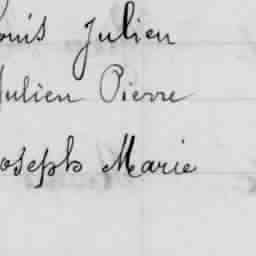 ouis Julien
Julien Pierre
oseph Marie